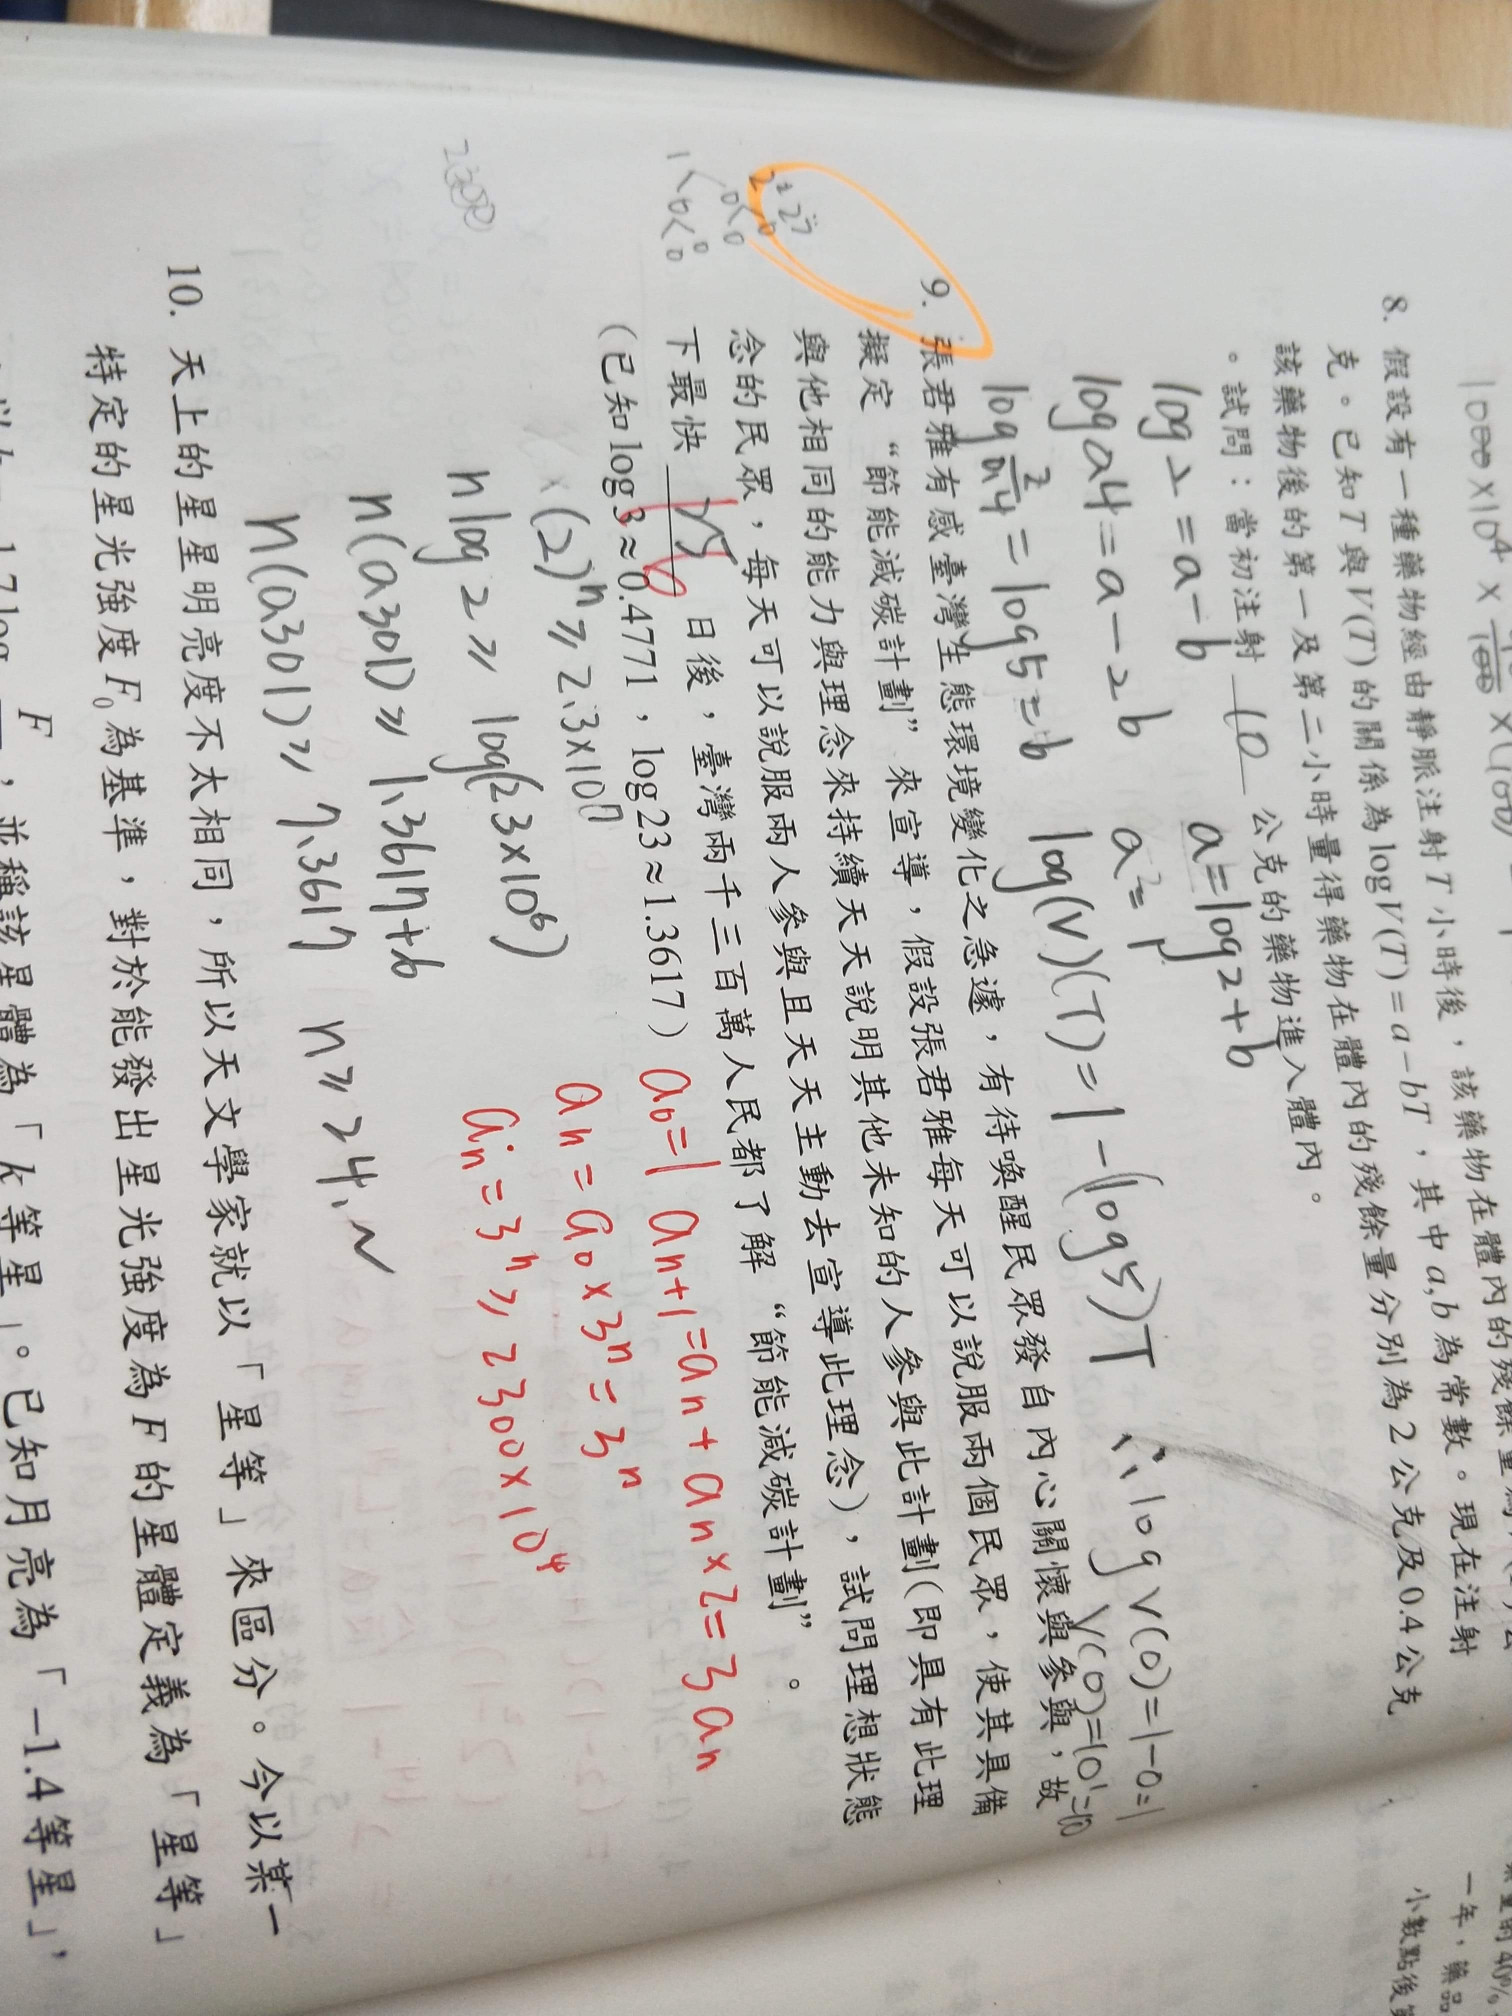 1000×10⁴×
8. 假設有一種藥物經由靜脈注射T小時後,該藥物在體內的殘餘量為
克。已知T與V(T)的關係為logV(T)=a-bT,其中a,b為常數。現在注射
該藥物後的第一及第二小時量得藥物在體內的殘餘量分別為2公克及0.4公克
。試問:當初注射 10 公克的藥物進入體內。
log2=a-b
a=log2+b
log0.4=a-2b
log 2/0.4=log5=b
log(V)(T)=1-(log5)T
∴logV(0)=1-0=1
V(0)=10¹=10
9. 張君雅有感臺灣生態環境變化之急遽,有待喚醒民眾發自內心關懷與參與,故
擬定“節能減碳計劃”來宣導,假設張君雅每天可以說服兩個民眾,使其具備
與他相同的能力與理念來持續天天說明其他未知的人參與此計劃(即具有此理
念的民眾,每天可以說服兩人參與且天天主動去宣導此理念),試問理想狀態
下最快 日後,臺灣兩千三百萬人民都了解“節能減碳計劃”。
(已知log3≈0.4771,log23≈1.3617)
(2)ⁿ≥2.3×10⁷
nlog2≥log(23×10⁶)
n(0.301)≥1.3617+6
n(0.301)≥7.3617
n≥24.~
a₀=1 aₙ₊₁=aₙ+aₙ×2=3aₙ
aₙ=a₀×3ⁿ=3ⁿ
aₙ=3ⁿ≥2300×10⁴
10. 天上的星星明亮度不太相同,所以天文學家就以「星等」來區分。今以某一
特定的星光強度F₀為基準,對於能發出星光強度為F的星體定義為「星等」
F
,並稱該星體為「k等星」。已知月亮為「-1.4等星」,
一年,藥品
小數點後